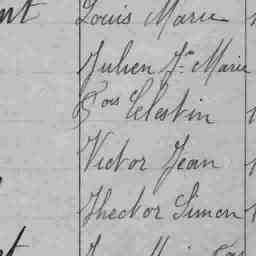 nt Louis Marie
Julien Jn Marie
Fois Celestin
Victor Jean
Thector Simon